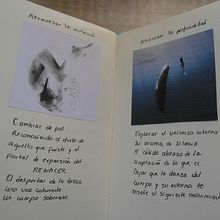 Atravesar la mutación
Cambiar de piel
Reconociendo el duelo de
aquello que fuiste y el
portal de expansión del
RENACER
El despertar de la diosa
una voz coherente
un cuerpo soberano
Atravesar la profundidad
Explorar el universo interno
Su aroma de silencio
El cálido abrazo de la
aceptación de lo que es.
Dejar que la danza del
cuerpo y su entorno te
enseñe el siguiente movimiento